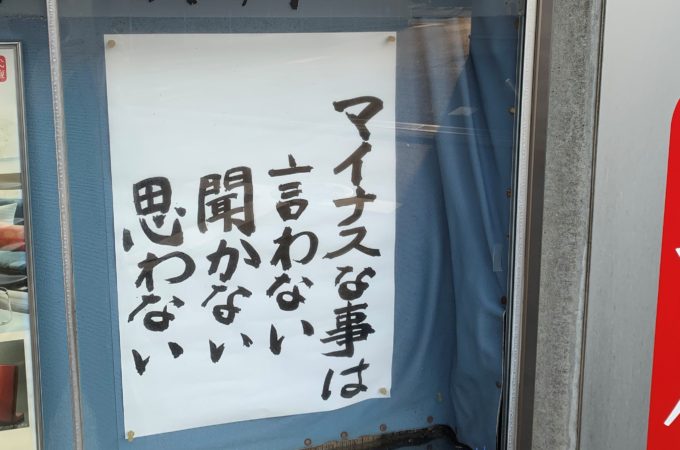 マイナスな事は
言わない
聞かない
思わない